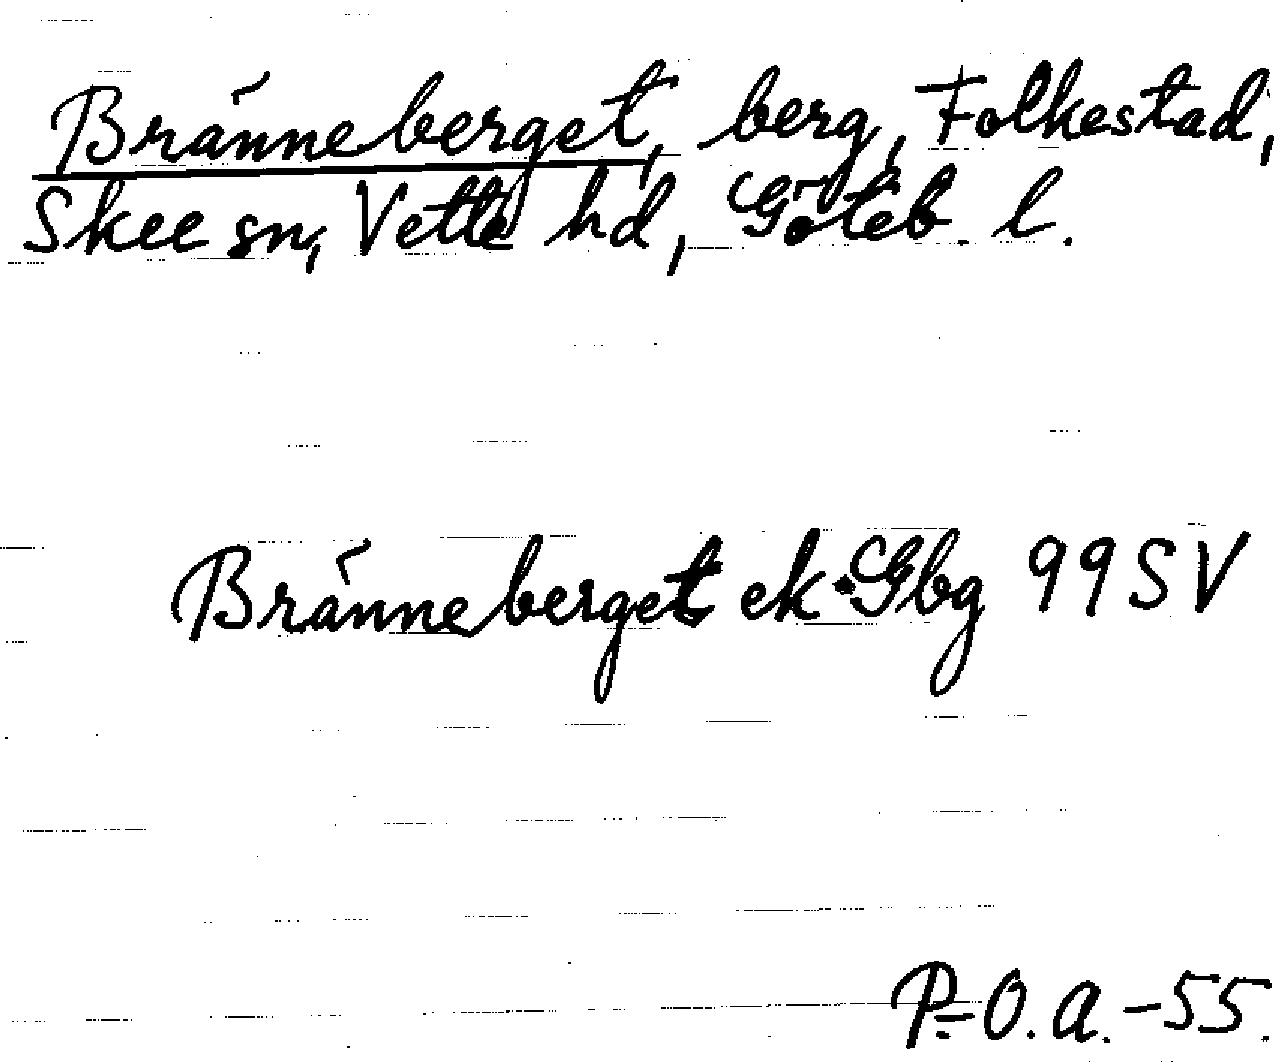 Bränneberget, berg, Folkestad,
Skee sn, Vette hd, Göteb. l.
Bränneberget ek. Gbg 99 SV
P.-O. A. -55.